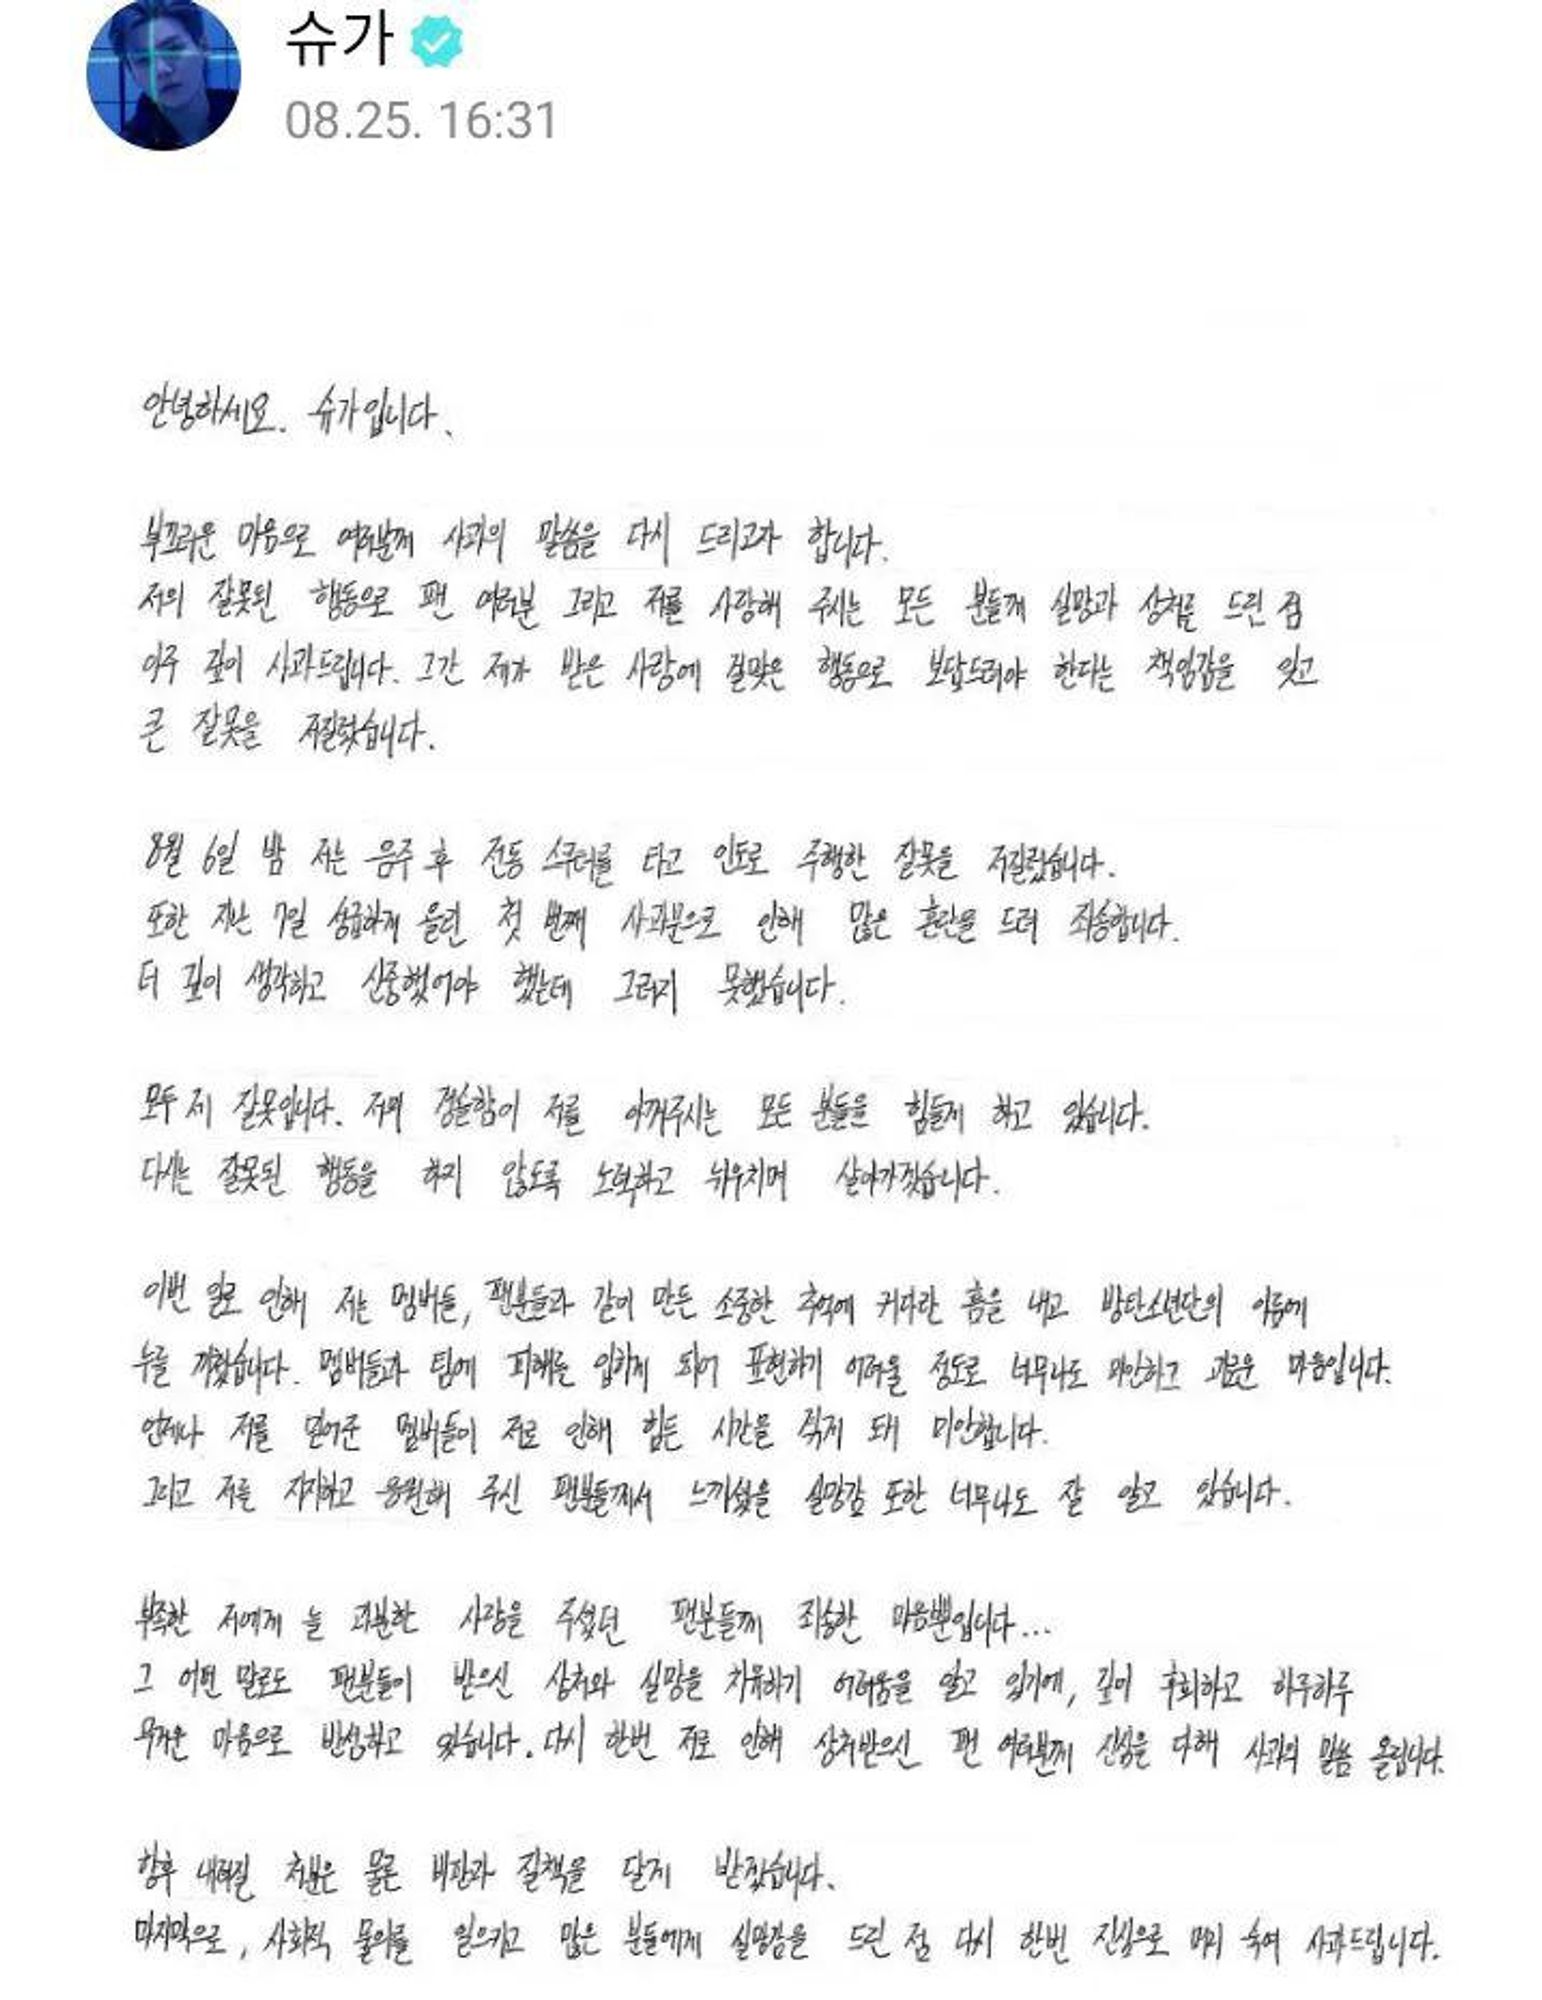 슈가
08.25. 16:31
안녕하세요. 슈가입니다.
부끄러운 마음으로 여러분께 사과의 말씀을 다시 드리고자 합니다.
저의 잘못된 행동으로 팬 여러분 그리고 저를 사랑해 주시는 모든 분들께 실망과 상처를 드린 점
아주 깊이 사과드립니다. 그간 제가 받은 사랑에 걸맞은 행동으로 보답드려야 한다는 책임감을 잊고
큰 잘못을 저질렀습니다.
8월 6일 밤 저는 음주 후 전동 스쿠터를 타고 인도로 주행한 잘못을 저질렀습니다.
또한 지난 7일 성급하게 올린 첫 번째 사과문으로 인해 많은 혼란을 드려 죄송합니다.
더 깊이 생각하고 신중했어야 했는데 그러지 못했습니다.
모두 제 잘못입니다. 저의 경솔함이 저를 아껴주시는 모든 분들을 힘들게 하고 있습니다.
다시는 잘못된 행동을 하지 않도록 노력하고 뉘우치며 살아가겠습니다.
이번 일로 인해 저는 멤버들, 팬분들과 같이 만든 소중한 추억에 커다란 흠을 내고 방탄소년단의 이름에
누를 끼쳤습니다. 멤버들과 팀에 피해를 입히게 되어 표현하기 어려울 정도로 너무나도 미안하고 괴로운 마음입니다.
언제나 저를 믿어준 멤버들이 저로 인해 힘든 시간을 겪게 돼 미안합니다.
그리고 저를 지지하고 응원해 주신 팬분들께서 느끼셨을 실망감 또한 너무나도 잘 알고 있습니다.
부족한 저에게 늘 과분한 사랑을 주셨던 팬분들께 죄송한 마음뿐입니다...
그 어떤 말로도 팬분들이 받으신 상처와 실망을 치유하기 어려움을 알고 있기에, 깊이 후회하고 하루하루
무거운 마음으로 반성하고 있습니다. 다시 한번 저로 인해 상처받으신 팬 여러분께 진심을 다해 사과의 말씀 올립니다.
향후 내려질 처분은 물론 비판과 질책을 달게 받겠습니다.
마지막으로, 사회적 물의를 일으키고 많은 분들에게 실망감을 드린 점 다시 한번 진심으로 머리 숙여 사과드립니다.